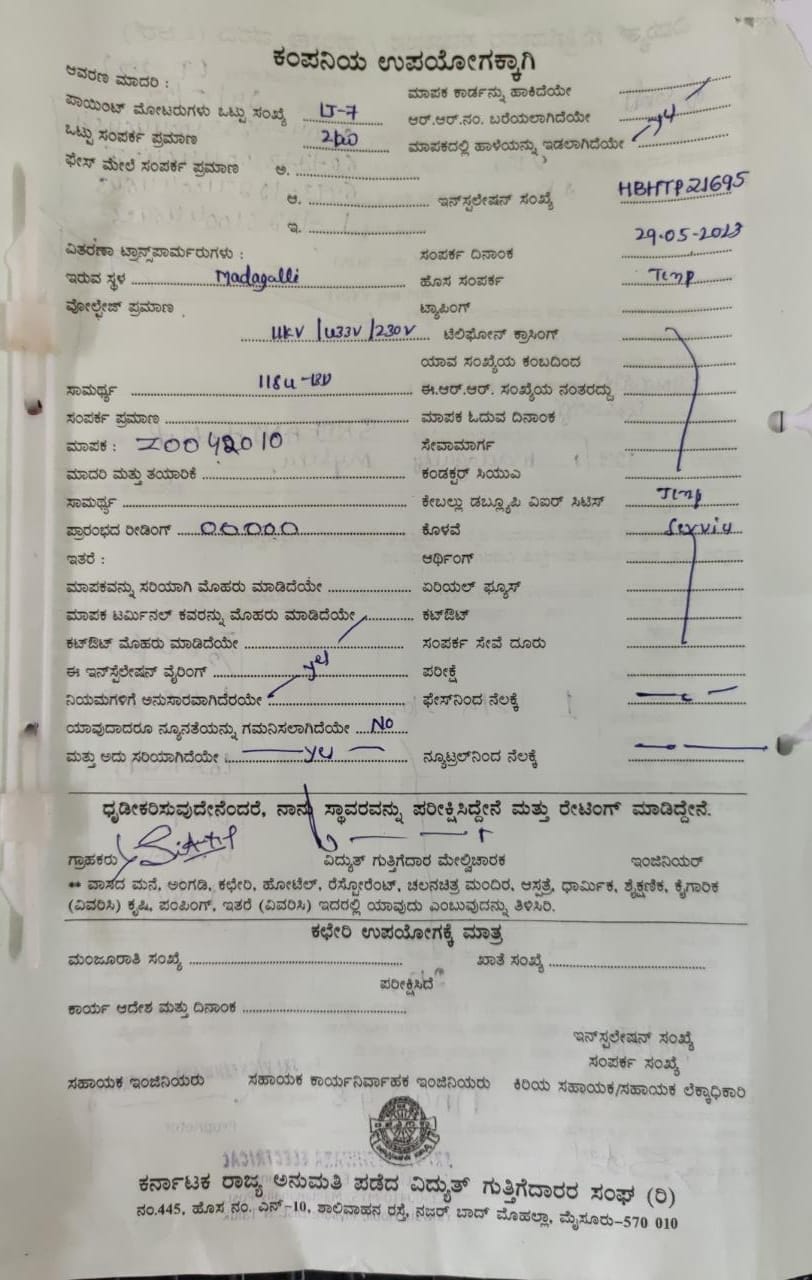 ಕಂಪನಿಯ ಉಪಯೋಗಕ್ಕಾಗಿ
ಆವರಣ ಮಾದರಿ : ಮಾಪಕ ಕಾರ್ಡನ್ನು ಹಾಕಿದೆಯೇ
ಪಾಯಿಂಟ್ ಮೋಟರುಗಳು ಒಟ್ಟು ಸಂಖ್ಯೆ LT-7 ಆರ್.ಆರ್.ನಂ. ಬರೆಯಲಾಗಿದೆಯೇ
ಒಟ್ಟು ಸಂಪರ್ಕ ಪ್ರಮಾಣ ಮಾಪಕದಲ್ಲಿ ಹಾಳೆಯನ್ನು ಇಡಲಾಗಿದೆಯೇ
ಫೇಸ್ ಮೇಲೆ ಸಂಪರ್ಕ ಪ್ರಮಾಣ ಅ.
ಆ. ಇನ್‌ಸ್ಟಲೇಷನ್ ಸಂಖ್ಯೆ HBHTP21695
ಇ. 29-05-2023
ವಿತರಣಾ ಟ್ರಾನ್ಸ್‌ಪಾರ್ಮರುಗಳು : ಸಂಪರ್ಕ ದಿನಾಂಕ
ಇರುವ ಸ್ಥಳ Madagalli ಹೊಸ ಸಂಪರ್ಕ Temp
ವೋಲ್ಟೇಜ್ ಪ್ರಮಾಣ ಟ್ಯಾಪಿಂಗ್
11KV / 433V / 230V ಟೆಲಿಫೋನ್ ಕ್ರಾಸಿಂಗ್
ಯಾವ ಸಂಖ್ಯೆಯ ಕಂಬದಿಂದ
ಸಾಮರ್ಥ್ಯ ಈ.ಆರ್.ಆರ್. ಸಂಖ್ಯೆಯ ನಂತರದ್ದು
ಸಂಪರ್ಕ ಪ್ರಮಾಣ ಮಾಪಕ ಓದುವ ದಿನಾಂಕ
ಮಾಪಕ : Z0042010 ಸೇವಾಮಾರ್ಗ
ಮಾದರಿ ಮತ್ತು ತಯಾರಿಕೆ ಕಂಡಕ್ಟರ್ ಸಿಯುಎ
ಸಾಮರ್ಥ್ಯ ಕೇಬಲ್ಲು ಡಬ್ಲ್ಯೂಪಿ ವಿಐರ್ ಸಿಟಿಸ್ Temp
ಪ್ರಾರಂಭದ ರೀಡಿಂಗ್ 00000 ಕೊಳವೆ Service
ಇತರೆ : ಆರ್ಥಿಂಗ್
ಮಾಪಕವನ್ನು ಸರಿಯಾಗಿ ಮೊಹರು ಮಾಡಿದೆಯೇ ಏರಿಯಲ್ ಫ್ಯೂಸ್
ಮಾಪಕ ಟರ್ಮಿನಲ್ ಕವರನ್ನು ಮೊಹರು ಮಾಡಿದೆಯೇ ಕಟ್‌ಔಟ್
ಕಟ್‌ಔಟ್ ಮೊಹರು ಮಾಡಿದೆಯೇ ಸಂಪರ್ಕ ಸೇವೆ ದೂರು
ಈ ಇನ್‌ಸ್ಟೆಲೇಷನ್ ವೈರಿಂಗ್ yes ಪರೀಕ್ಷೆ
ನಿಯಮಗಳಿಗೆ ಅನುಸಾರವಾಗಿದೆರಯೇ ಫೇಸ್‌ನಿಂದ ನೆಲಕ್ಕೆ
ಯಾವುದಾದರೂ ನ್ಯೂನತೆಯನ್ನು ಗಮನಿಸಲಾಗಿದೆಯೇ No
ಮತ್ತು ಅದು ಸರಿಯಾಗಿದೆಯೇ yes ನ್ಯೂಟ್ರಲ್‌ನಿಂದ ನೆಲಕ್ಕೆ
ಧೃಡೀಕರಿಸುವುದೇನೆಂದರೆ, ನಾನು ಸ್ಥಾವರವನ್ನು ಪರೀಕ್ಷಿಸಿದ್ದೇನೆ ಮತ್ತು ರೇಟಿಂಗ್ ಮಾಡಿದ್ದೇನೆ.
ಗ್ರಾಹಕರು ವಿದ್ಯುತ್ ಗುತ್ತಿಗೆದಾರ ಮೇಲ್ವಿಚಾರಕ ಇಂಜಿನಿಯರ್
** ವಾಸದ ಮನೆ, ಅಂಗಡಿ, ಕಛೇರಿ, ಹೋಟೆಲ್, ರೆಸ್ಟೋರೆಂಟ್, ಚಲನಚಿತ್ರ ಮಂದಿರ, ಆಸ್ಪತ್ರೆ, ಧಾರ್ಮಿಕ, ಶೈಕ್ಷಣಿಕ, ಕೈಗಾರಿಕ
(ವಿವರಿಸಿ) ಕೃಷಿ, ಪಂಪಿಂಗ್, ಇತರೆ (ವಿವರಿಸಿ) ಇದರಲ್ಲಿ ಯಾವುದು ಎಂಬುವುದನ್ನು ತಿಳಿಸಿರಿ.
ಕಛೇರಿ ಉಪಯೋಗಕ್ಕೆ ಮಾತ್ರ
ಮಂಜೂರಾತಿ ಸಂಖ್ಯೆ ಖಾತೆ ಸಂಖ್ಯೆ
ಪರೀಕ್ಷಿಸಿದೆ
ಕಾರ್ಯ ಆದೇಶ ಮತ್ತು ದಿನಾಂಕ
ಇನ್‌ಸ್ಟಲೇಷನ್ ಸಂಖ್ಯೆ
ಸಂಪರ್ಕ ಸಂಖ್ಯೆ
ಸಹಾಯಕ ಇಂಜಿನಿಯರು ಸಹಾಯಕ ಕಾರ್ಯನಿರ್ವಾಹಕ ಇಂಜಿನಿಯರು ಕಿರಿಯ ಸಹಾಯಕ/ಸಹಾಯಕ ಲೆಕ್ಕಾಧಿಕಾರಿ
ಕರ್ನಾಟಕ ರಾಜ್ಯ ಅನುಮತಿ ಪಡೆದ ವಿದ್ಯುತ್ ಗುತ್ತಿಗೆದಾರರ ಸಂಘ (ರಿ)
ನಂ.445, ಹೊಸ ನಂ. ಎನ್-10, ಶಾಲಿವಾಹನ ರಸ್ತೆ, ನಜರ್ ಬಾದ್ ಮೊಹಲ್ಲಾ, ಮೈಸೂರು-570 010